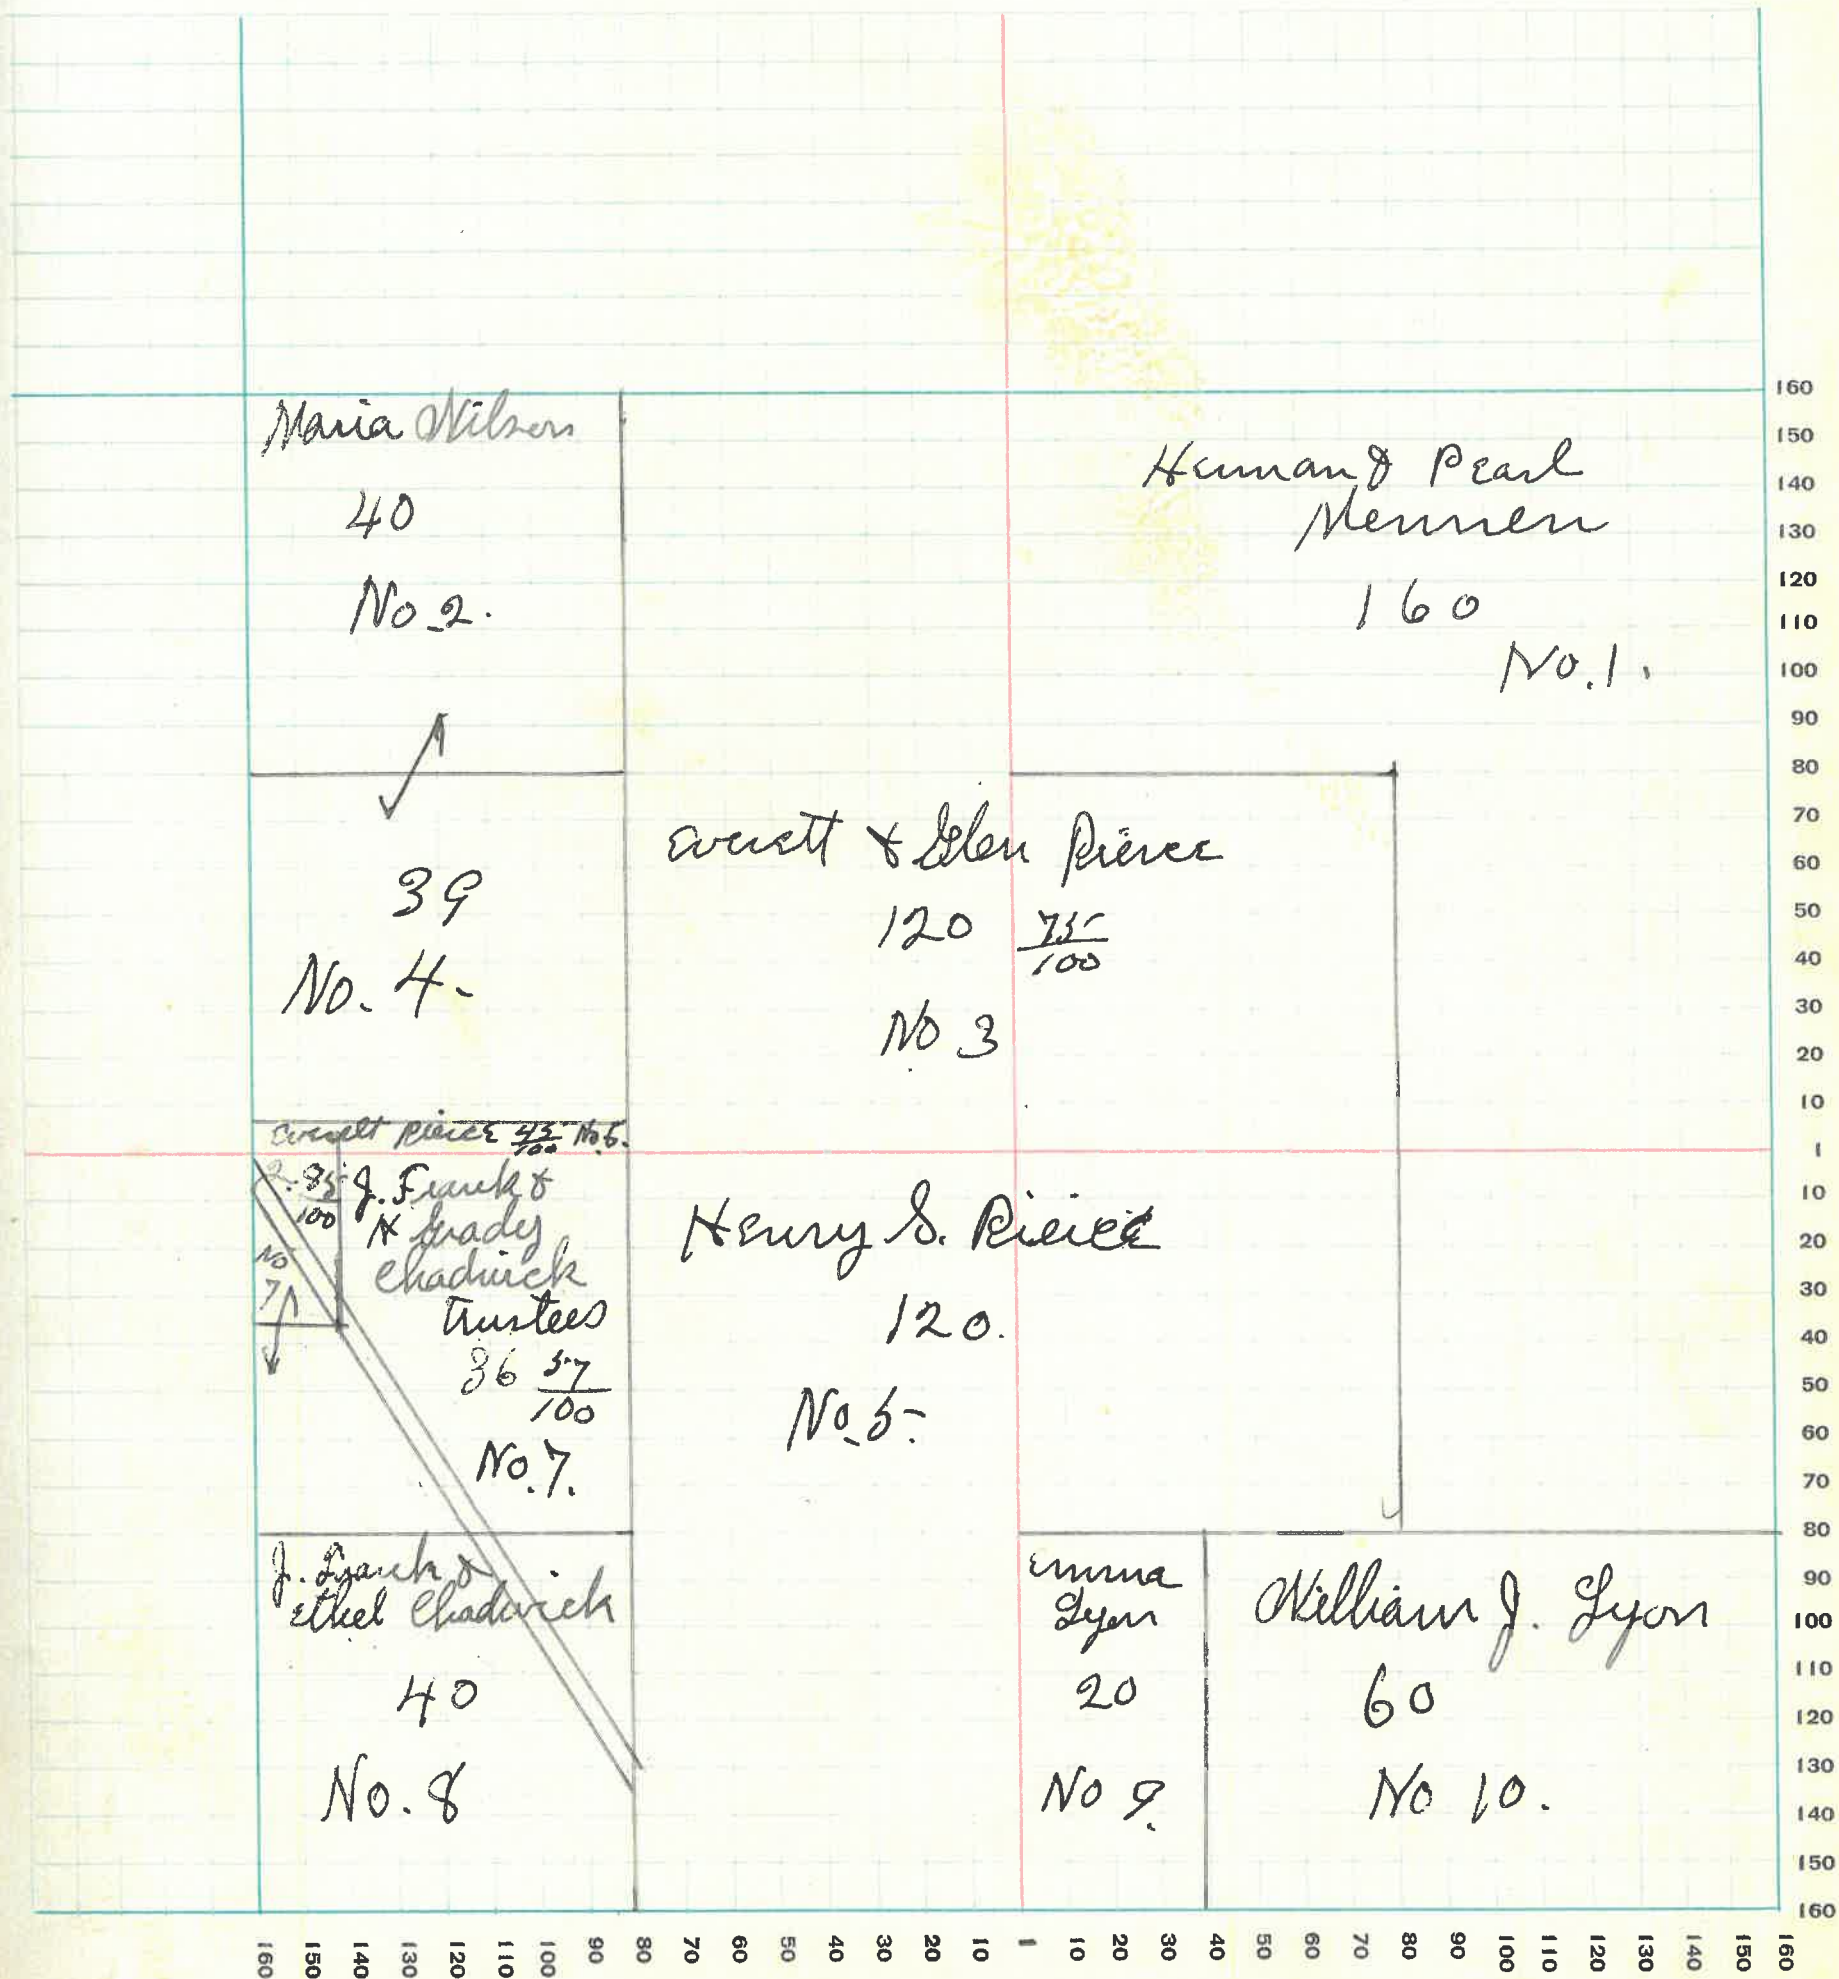 Maria Wilson
40
No 2.
Herman & Pearl
Mennen
160
No. 1.
39
No. 4.
Everett & Glen Pierce
120 75/100
No 3
Everett Pierce 45/100 No 6.
2. 85/100
No
7
J. Frank &
H Grady
Chadwick
Trustees
36 57/100
No. 7.
Henry S. Pierce
120.
No. 5.
J. Frank &
Ethel Chadwick
40
No. 8
Emma
Lyon
20
No 9.
William J. Lyon
60
No 10.
160
150
140
130
120
110
100
90
80
70
60
50
40
30
20
10
1
10
20
30
40
50
60
70
80
90
100
110
120
130
140
150
160
160 150 130 120 110 100 90 80 70 60 50 40 30 20 10 1 10 20 30 40 50 60 70 80 90 100 110 120 130 140 150 160